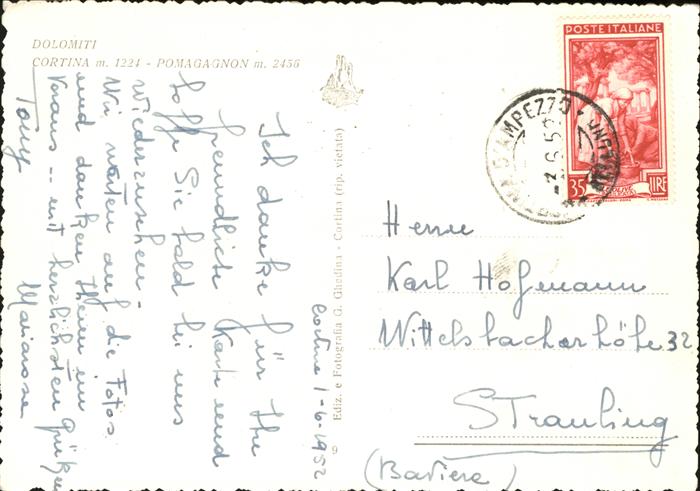 DOLOMITI
CORTINA m. 1224 - POMAGAGNON m. 2456
Cortina 1-6-1952
Ich danke für Ihre
freundliche Karte und
hoffe Sie bald bei uns
wiederzusehen.
Wir warten auf die Fotos
und danken Ihnen im
Voraus -- mit herzlichsten Grüßen
Tony Marianne
Ediz. e Fotografia G. Ghedina - Cortina (rip. vietata)
9
POSTE ITALIANE
35 LIRE
CORTINA D'AMPEZZO
Herrn
Karl Hofmann
Wittelsbacherhöhe 32
Straubing
(Baviera)